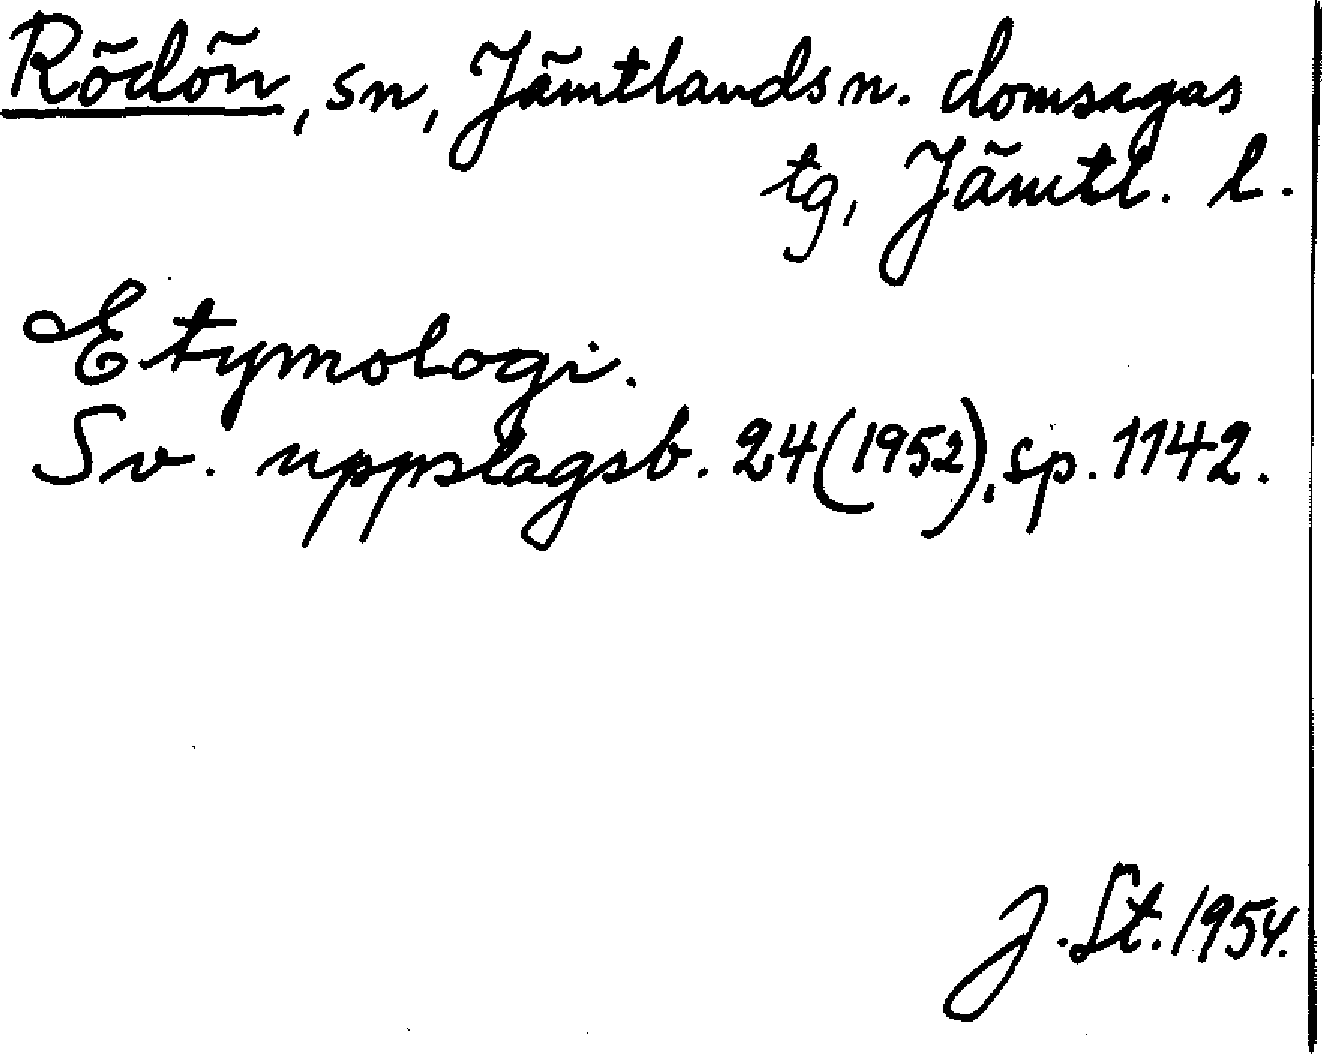 Rödön, sn, Jämtlands n. domsagas
tg, Jämtl. l.
Etymologi.
Sv. uppslagsb. 24 (1952), sp. 1142.
J. St. 1954.